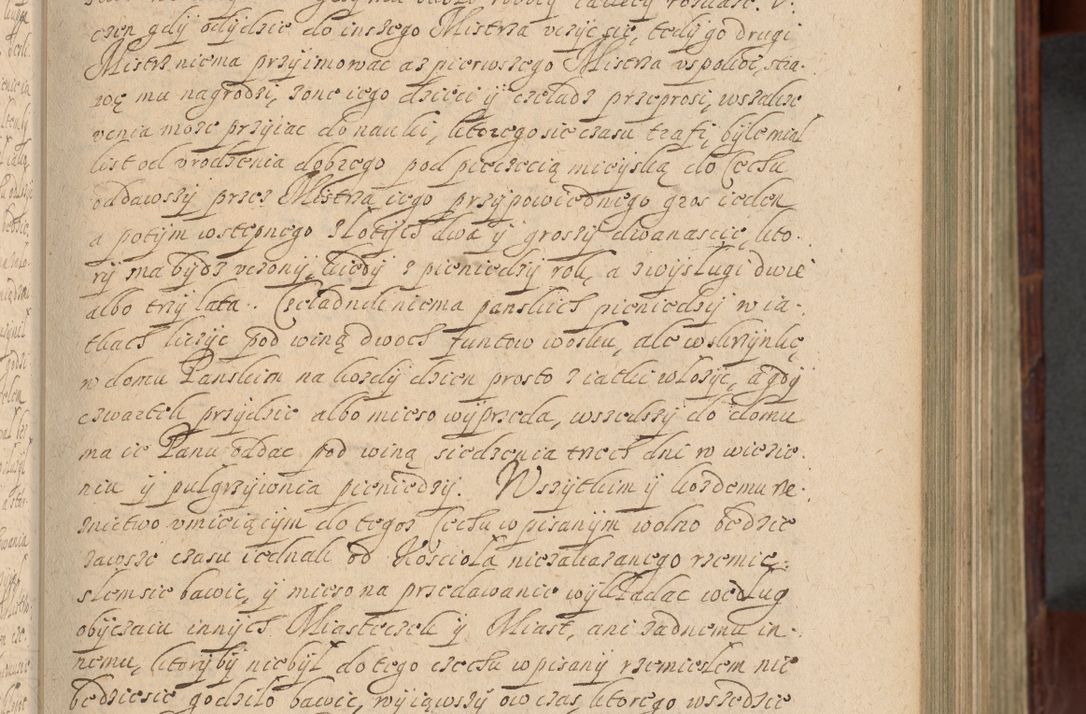 czen gdÿ odÿdzie do inszego Mistrza vczÿć się, tedÿ go drugi
Mistrz niema przÿimować aż pierwszego Mistrza vspokoi, stra-
wę mu nagrodzi, żonę iego dzieci ÿ czeladz przeprosi, wszakże
vcznia może przÿiąc do nauki, ktorego się czasu trafi, bÿle miał
list od vrodzenia dobrego pod pieczęcią mieÿską do Cechu
oddawszÿ przez Mistrza iego przÿpowiednego grosz ieden
a potÿm wstępnego złotÿch dwa ÿ groszÿ dwanascie, kto-
rÿ ma bÿdz vczonÿ, kiedÿ z pieniedzÿ rok, a z wÿsługi dwie
albo trzÿ lata. Czeladnik niema panskich pieniedzÿ w ia-
tkach liczÿc pod winą dwoch funtow wosku, ale w skrzÿnkę
w domu Panskim na kozdÿ dzien prosto z iatki włozÿc, a gdÿ
czwartek przÿdzie albo mieso wÿprzeda, wszedszÿ do domu
ma ie Panu oddac pod winą siedzenia trzech dni w wiezie-
niu ÿ pulgrzÿwnia pieniedzÿ. Wszÿtkim ÿ kozdemu rze-
znictwo vmieiącÿm do tegoz Cechu wpisanÿm wolno będzie
zawsze czasu iednak od Kościoła niezakazanego rzemie-
słem sie bawic, ÿ mieso na przedawanie wÿkładac według
obÿczaiu innÿch Miasteczek ÿ Miast, ani żadnemu in-
nemu, ktorÿ bÿ niebÿł do tego czechu wpisanÿ rzemiesłem nie
będzie sie godziło bawic, wÿiąwszÿ ow czas, ktorego wszędzie